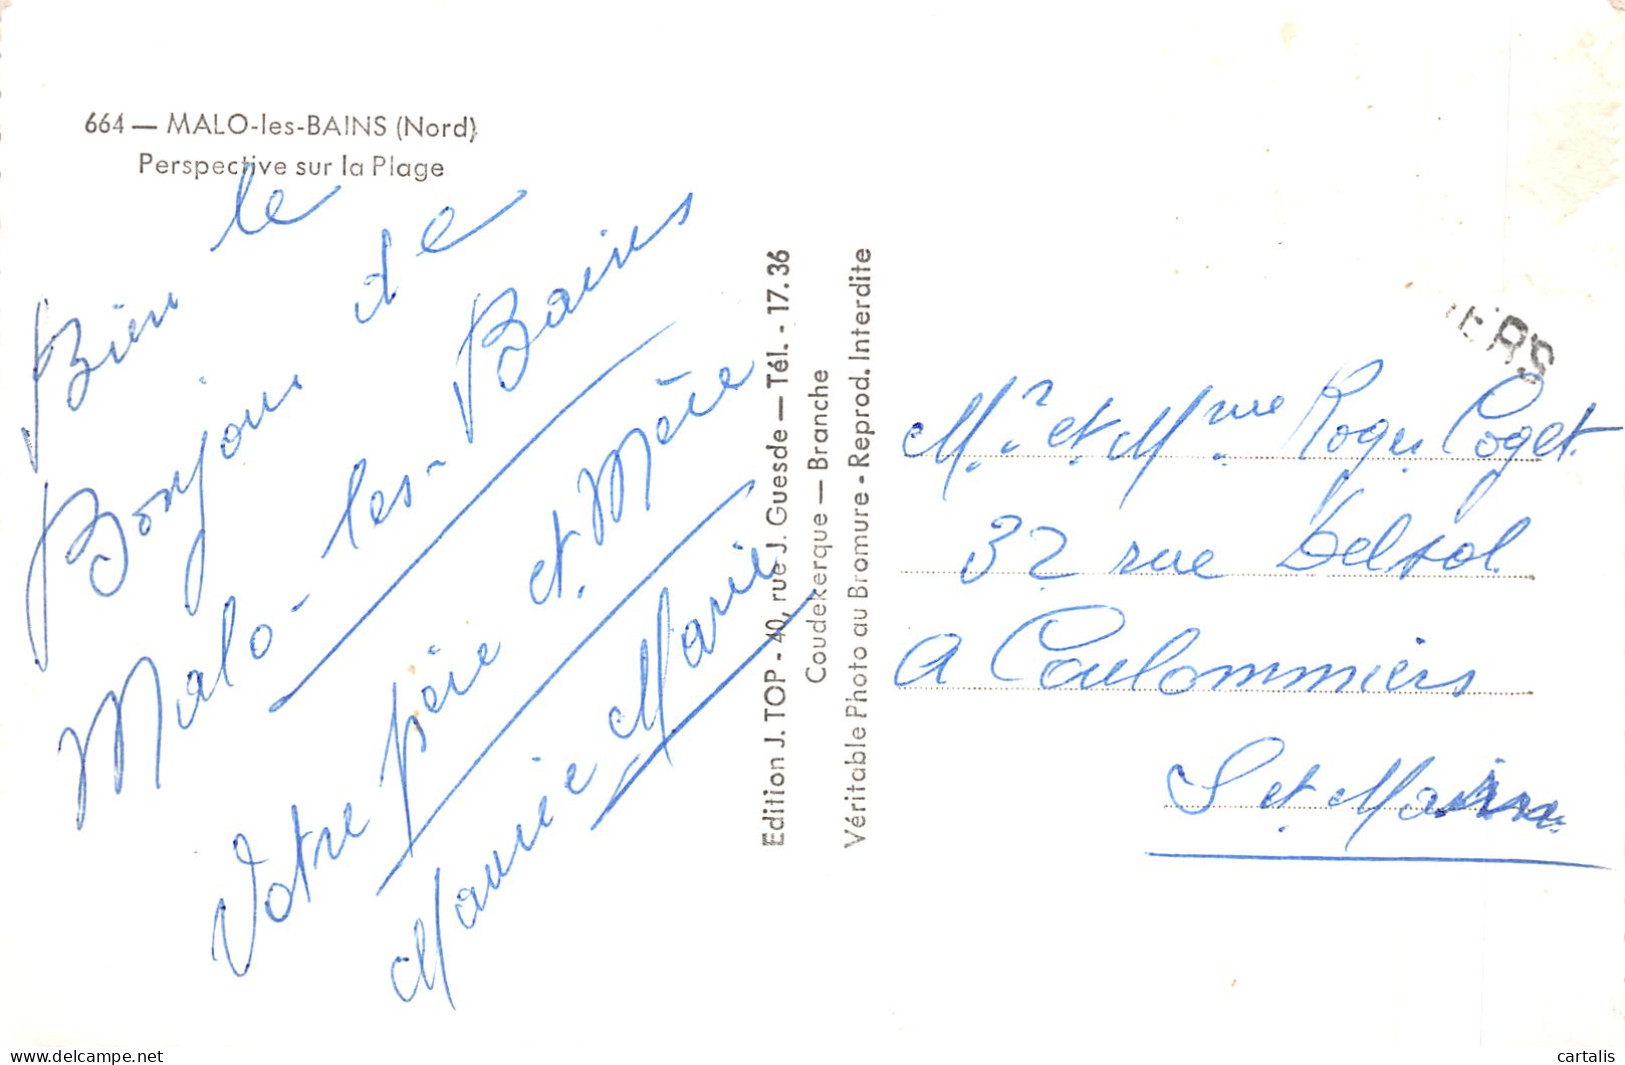 664 — MALO-les-BAINS (Nord)
Perspective sur la Plage
Bien le
Bonjour de
Malo-les-Bains
Votre père et Mère
Maurice Marie
Edition J. TOP - 40, rue J. Guesde — Tél. - 17.36
Coudekerque — Branche
Véritable Photo au Bromure - Reprod. Interdite
ERS
Mr. et Mme Roger Coget
32 rue Delsol
A Coulommiers
S et Marne
www.delcampe.net
cartalis